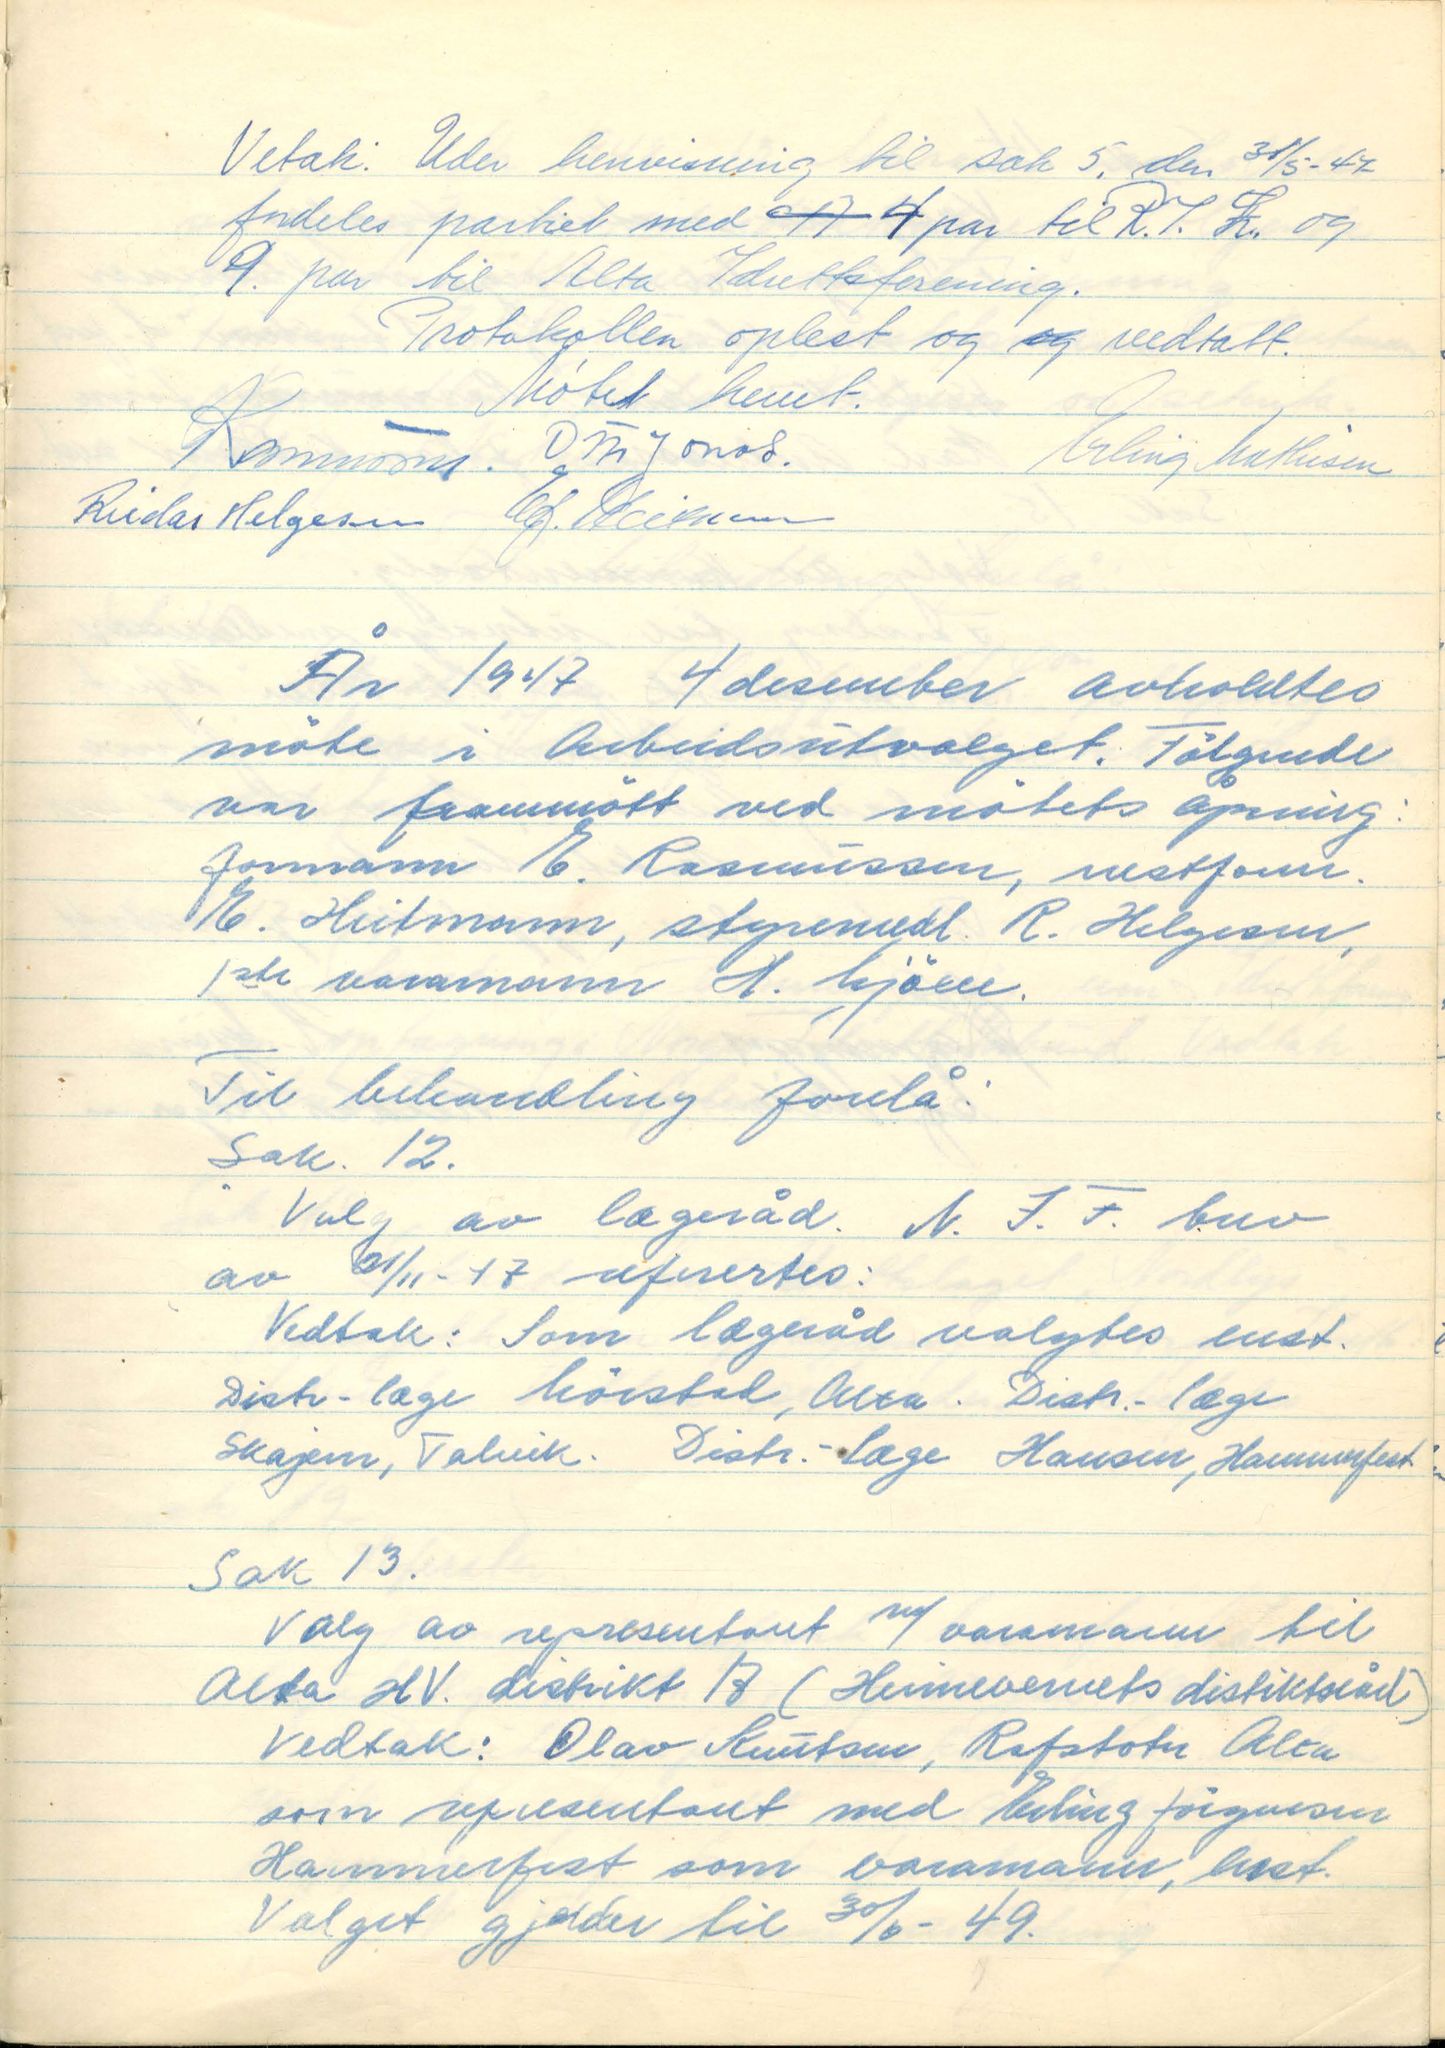 Vetak: Uder henvisning til sak 5. den 31/5-47
fordeles partiet med 4 par til R.I.L. og
9. par til Alta Idrettsforening.
Protokollen oplest og og vedtatt.
Møtet hevet.
Rasmussen. Erling Mathisen
Reidar Helgesen E. Heitmann
År 1947 4 desember avholdtes
möte i Arbeidsutvalget. Fölgende
var frammött ved mötets åpning:
formann E. Rasmussen, nestform.
E. Heitmann, styremedl. R. Helgesen,
1ste varamann H. Kjöen.
Til behandling forelå:
Sak. 12.
Valg av lægeråd. N. I. F. brev
av 21/11-47 referertes:
Vedtak: Som lægeråd valgtes enst.
Distr-læge Hörstad, Alta. Distr.-læge
Skajem, Talvik. Distr.-læge Hansen, Hammerfest
Sak 13.
Valg av representant m/ varamann til
Alta HV. distrikt 17 (Heimevernets distiktsråd)
Vedtak: Olav Knutsen, Rafsbotn Alta
som representant med Erling Jörgensen
Hammerfest som varamann, Enst.
Valget gjelder til 30/6-49.